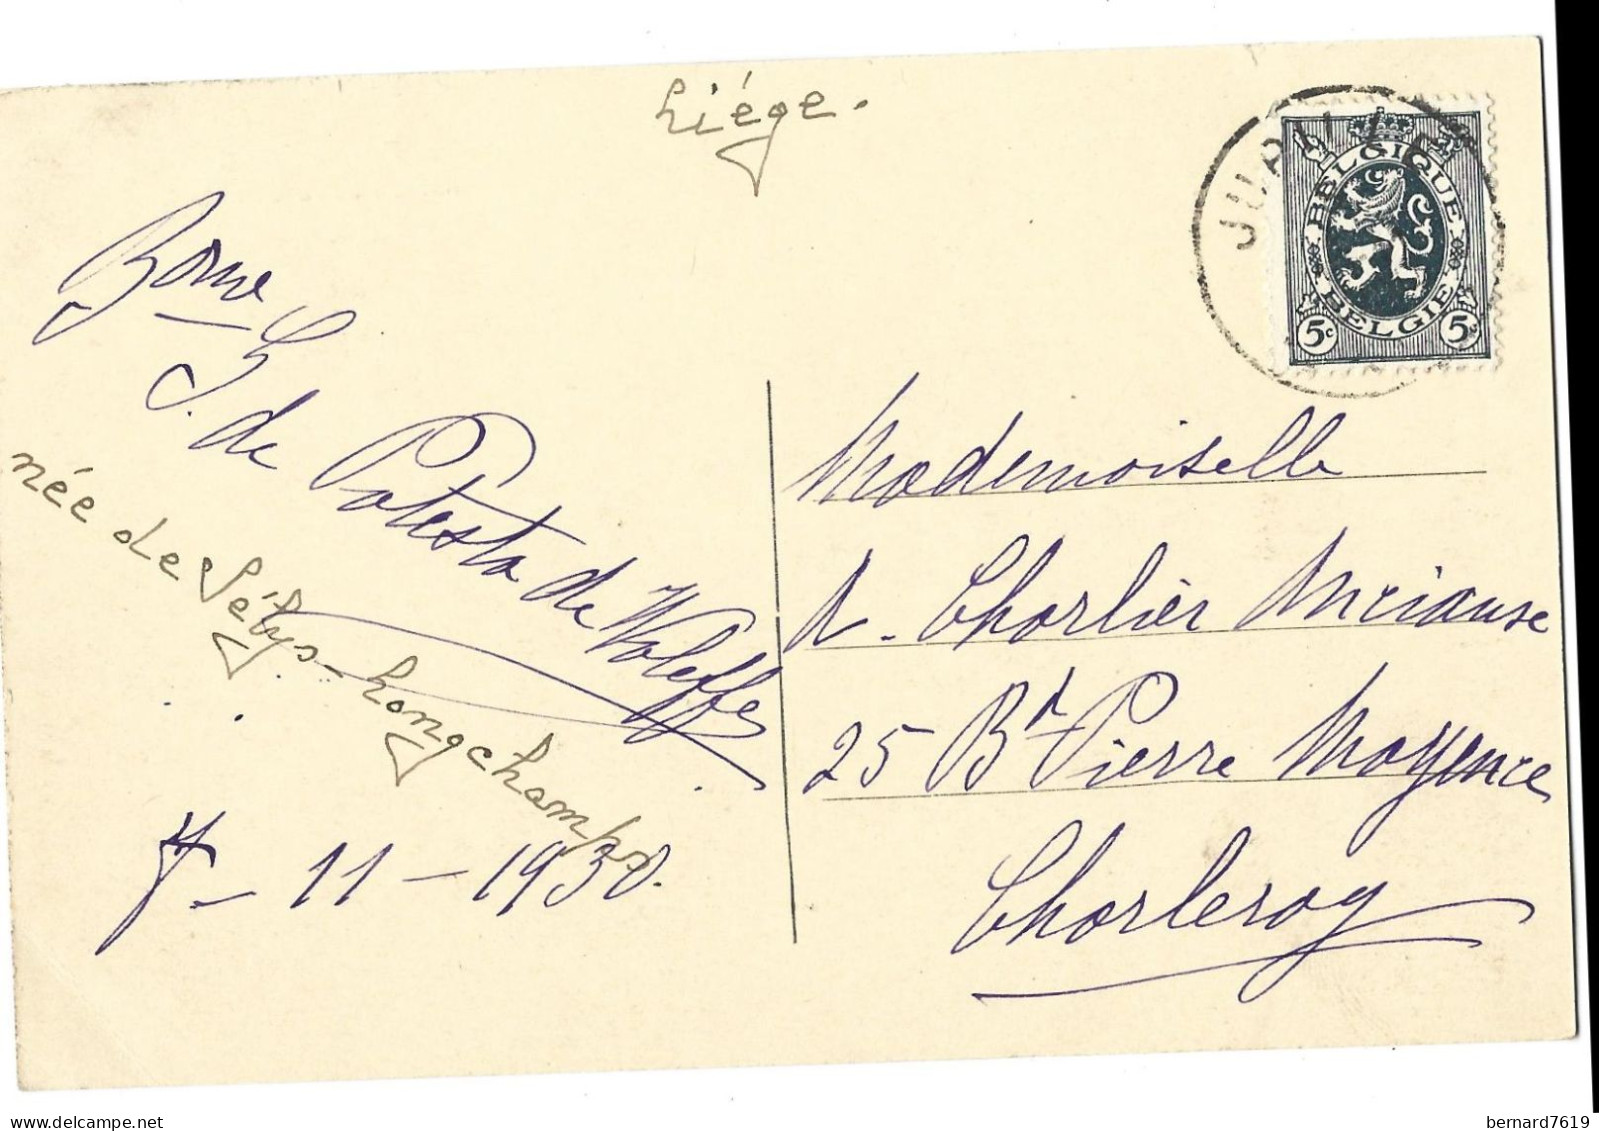 Liége.
JUPILLE
BELGIQUE
BELGIE
5c 5c
Bonne
S. de Potesta de Waleffe
née de Sélys-Longchamps
7 - 11 - 1930.
Mademoiselle
A. Charlier
25 Bd Pierre Mayence
Charleroy
delcampe.net
bernard7619